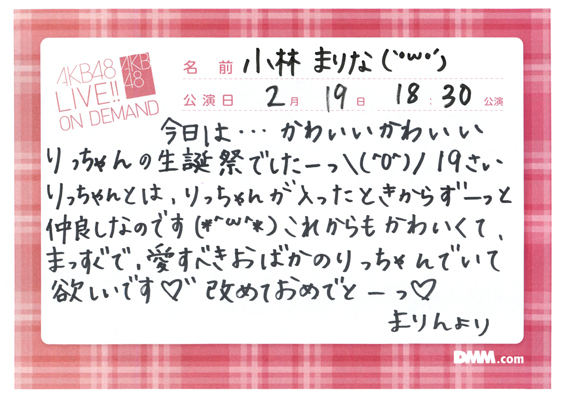 AKB48
LIVE!!
ON DEMAND
AKB
48
名前 小林 まりな(`・ω・´)
公演日 2月 19日 18:30公演
今日は… かわいいかわいい
りっちゃんの生誕祭でしたーっ\(^o^)/ 19さい
りっちゃんとは、りっちゃんが入ったときからずーっと
仲良しなのです(*^ω^*)これからもかわいくて、
まっすぐで、愛すべきおばかのりっちゃんでいて
欲しいです♡゛改めておめでとーっ♡
まりんより
DMM.com